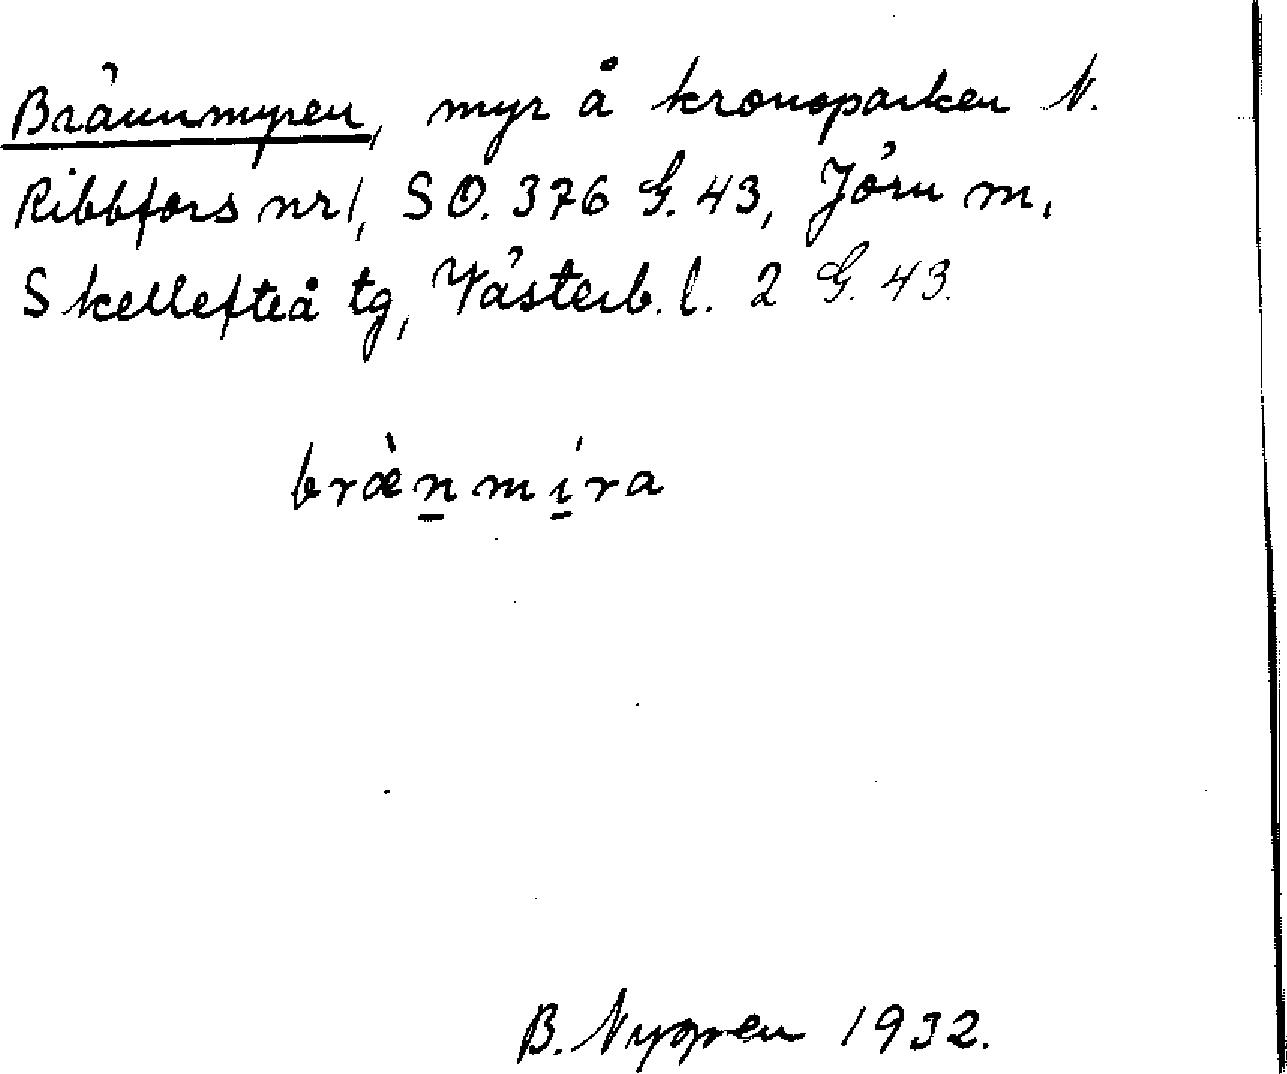 Brännmyren, myr å kronoparken N.
Ribbfors nr 1, S O. 376 G. 43, Jörn m,
Skellefteå tg, Västerb. l. 2 G. 43.
bræ̀n̲mí̲ra
B. Nygren 1932.